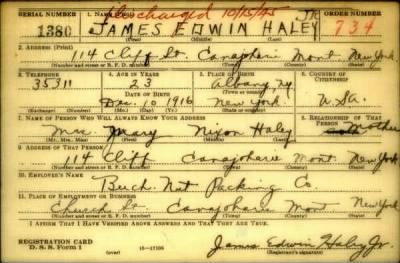 Discharged 10/15/45
SERIAL NUMBER 1. NAME (Print) ORDER NUMBER
1380 JAMES EDWIN HALEY JR 734
(First) (Middle) (Last)
2. ADDRESS (Print)
114 Cliff St. Canajoharie Mont New York
(Number and street or R. F. D. number) (Town) (County) (State)
3. TELEPHONE 4. AGE IN YEARS 5. PLACE OF BIRTH 6. COUNTRY OF CITIZENSHIP
35311 23 Albany, Ny
DATE OF BIRTH
Dec. 10 1916 New York U.S.A.
(Mo.) (Day) (Yr.) (State or country)
7. NAME OF PERSON WHO WILL ALWAYS KNOW YOUR ADDRESS 8. RELATIONSHIP OF THAT PERSON
Mrs. Mary Nixon Haley Mother
(Mr., Mrs., Miss) (First) (Middle) (Last)
9. ADDRESS OF THAT PERSON
114 Cliff Canajoharie Mont. New York
(Number and street or R. F. D. number) (Town) (County) (State)
10. EMPLOYER'S NAME
Beech Nut Packing Co.
11. PLACE OF EMPLOYMENT OR BUSINESS
Church St. Canajoharie Mont New York
(Number and street or R. F. D. number) (Town) (County) (State)
I AFFIRM THAT I HAVE VERIFIED ABOVE ANSWERS AND THAT THEY ARE TRUE.
REGISTRATION CARD
D. S. S. Form 1 (over) 16-17105
James Edwin Haley Jr.
(Registrant's signature)